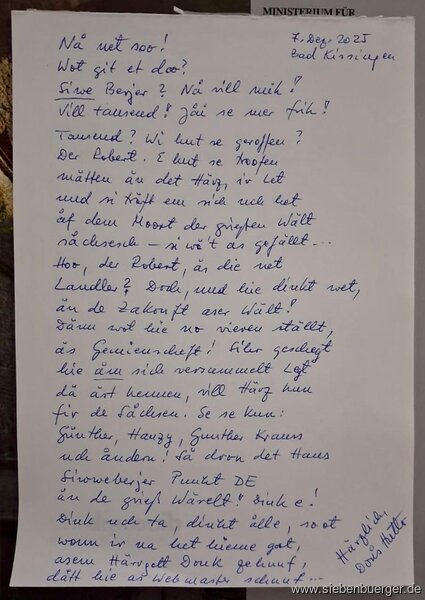 MINISTERIUM FÜR
7. Dez. 2025
Bad Kissingen
Nå net soo!
Wot git et doo?
Siwe Berjer? Nå vill mih!
Vill tausend! Jåi se mer frih!
Tausend? Wi hut se geroffen?
Der Robert. E hut se troffen
mätten ån det Härz, ir Let
und si träft em sich nch het
åf dem Moort der griesten Wält
såchsesch – si wä't as gefällt...
Hoo, der Robert, ås die net
Landler? Doch, und hie dinkt wet,
ån de Zakonft aser Wält!
Dånn wot hie no vieren stållt,
ås Gemienscheft! Eiler geschegt
hie åm sich versummelt Legt
då årt kennen, vill Härz hun
fir de Såchsen. Se se kun:
Günther, Hanzy, Gunther Krauss
uch åndern! Så dron det Haus
Sivveberjer Punkt DE
ån de grieß Wårelt! Dink e!
Dink uch ta, dinkt ålle, soot
wonn ir na het hieme got,
asem Härrgott Donk gehuuf,
dått hie as Webmaster schauf...
Härzlich,
Doris Hutter
www.siebenbuerger.de